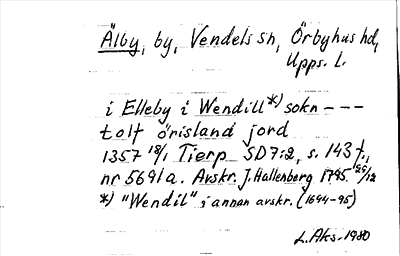 Älby, by, Vendels sn, Örbyhus hd,
Upps. l.
i Elleby i Wendill*) sokn ---
tolf örisland jord
1357 18/1 Tierp SD7:2, s. 143 f.,
nr 5691a. Avskr. J. Hallenberg 1795 26/12
*) "Wendil" i annan avskr. (1694-95)
L. Aks. 1980